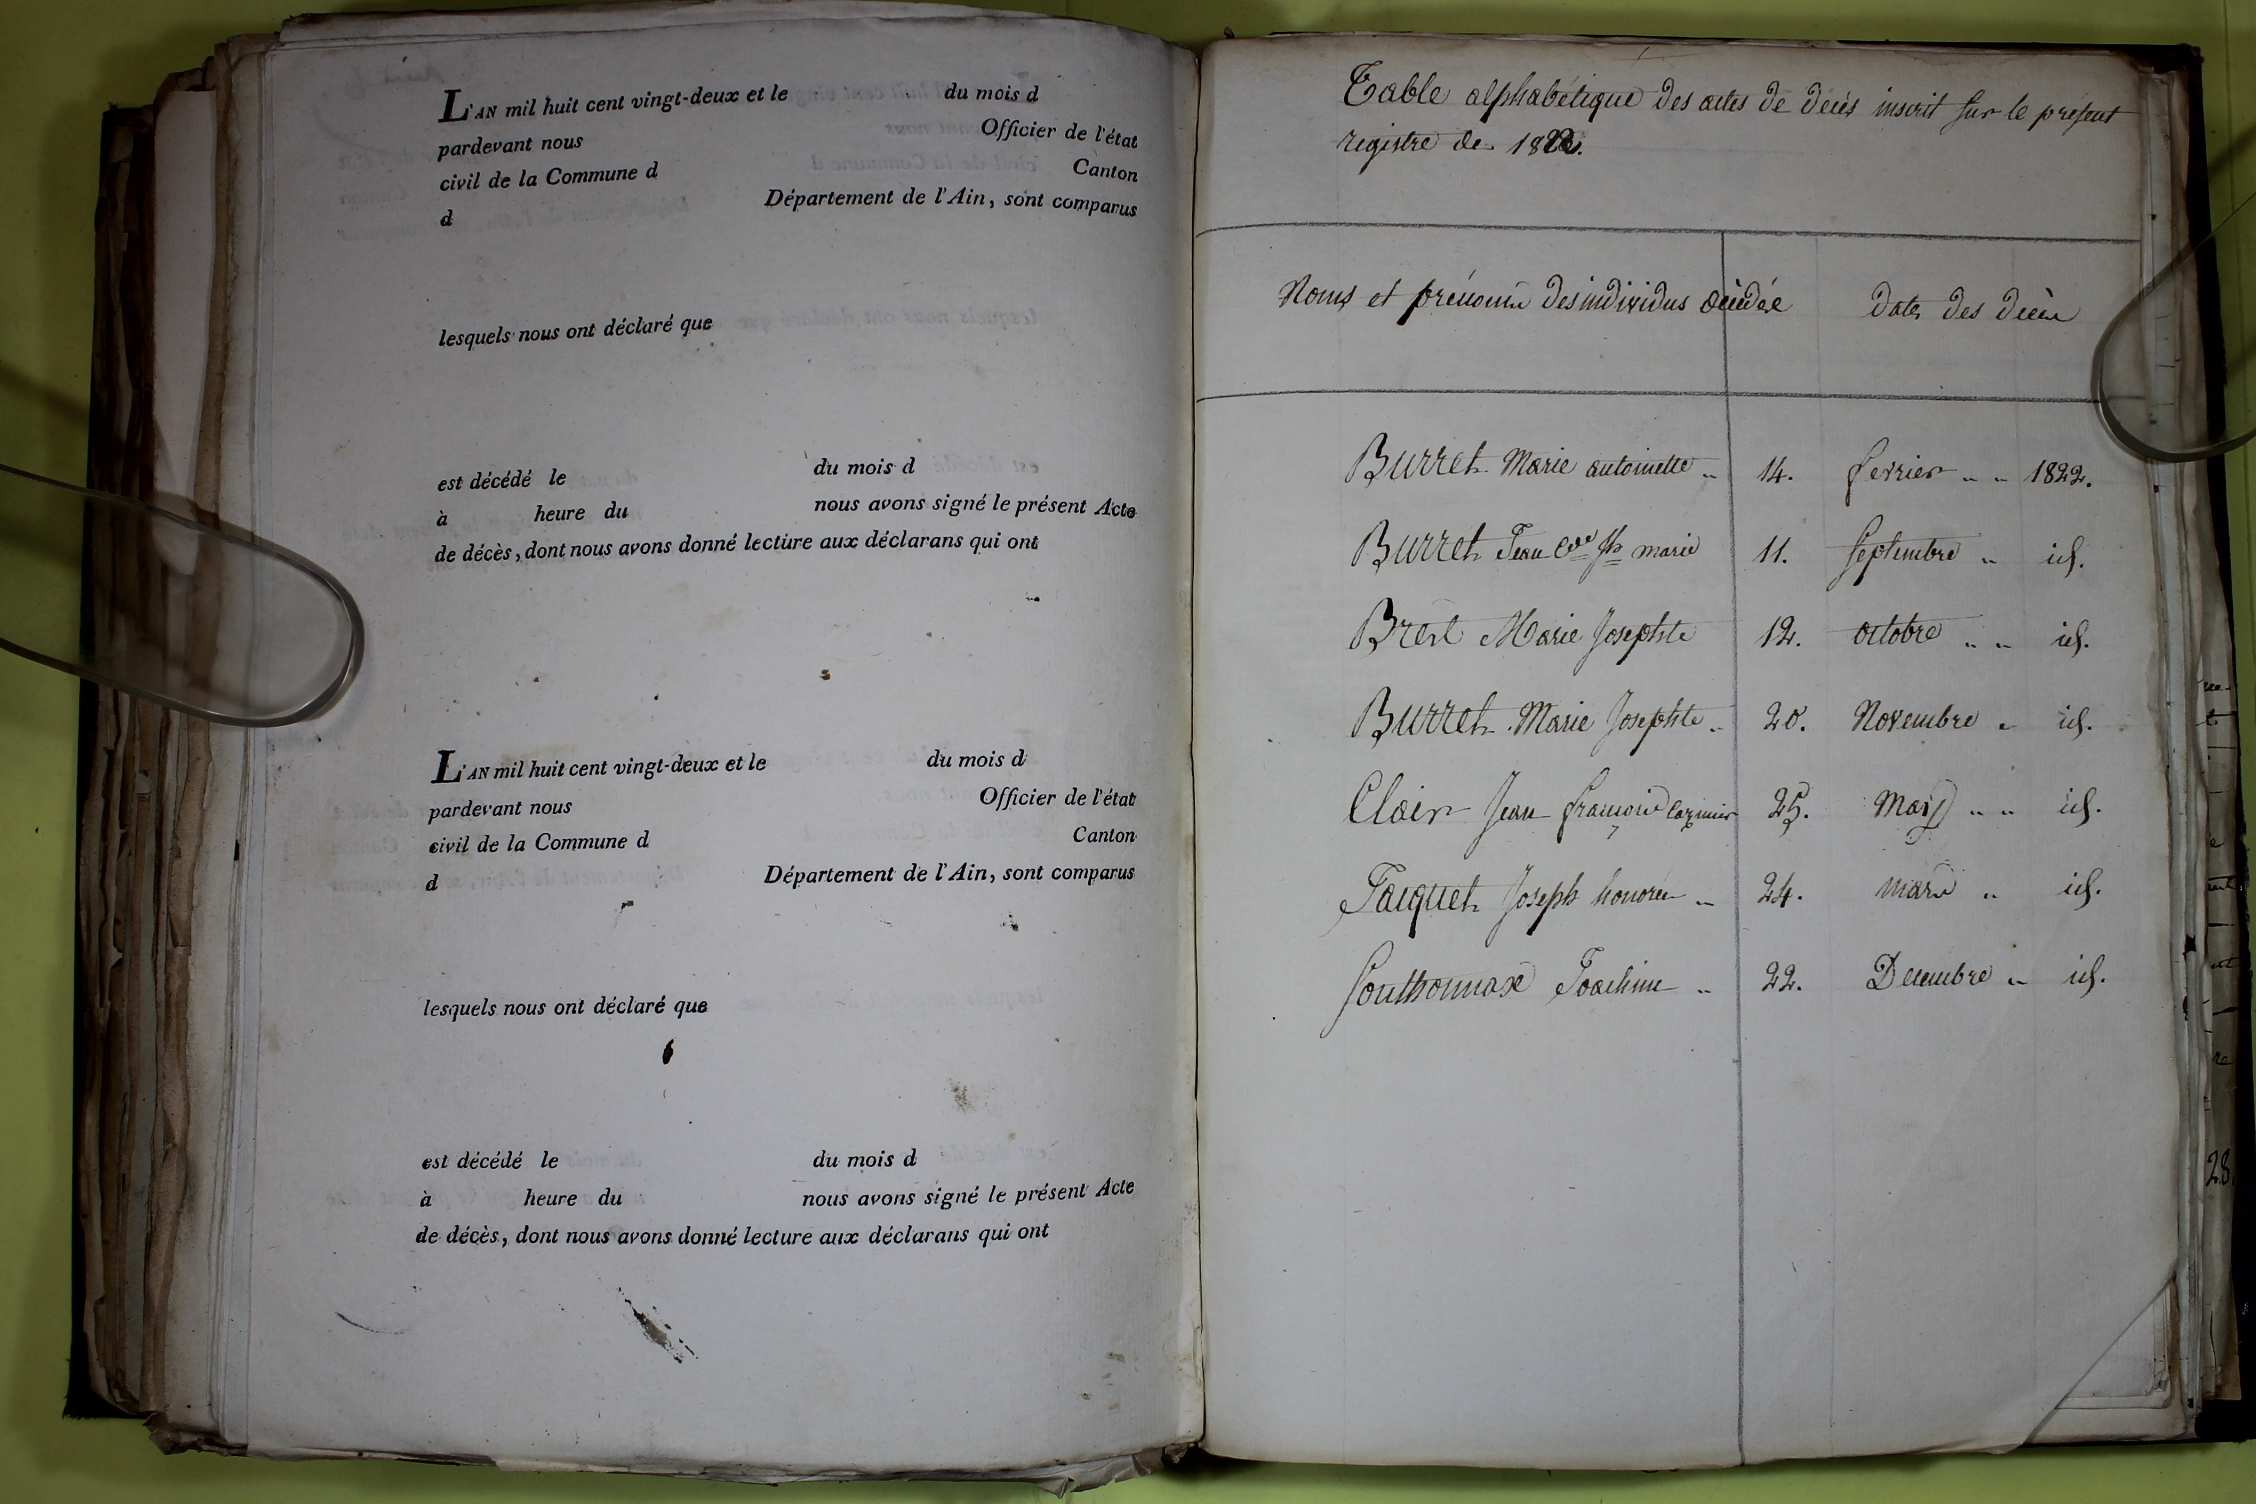 L'AN mil huit cent vingt-deux et le du mois d
pardevant nous Officier de l'état
civil de la Commune d Canton
d Département de l'Ain, sont comparus
lesquels nous ont déclaré que
est décédé le du mois d
à heure du nous avons signé le présent Acte
de décès, dont nous avons donné lecture aux déclarans qui ont
L'AN mil huit cent vingt-deux et le du mois d
pardevant nous Officier de l'état
civil de la Commune d Canton
d Département de l'Ain, sont comparus
lesquels nous ont déclaré que
est décédé le du mois d
à heure du nous avons signé le présent Acte
de décès, dont nous avons donné lecture aux déclarans qui ont
Table alphabétique des actes de décès inscrit sur le present
registre de 1822.
Noms et prénoms des individus décédés Dates des décès
Burret Marie antoinette 14. fevrier 1822.
Burret Jean marie 11. Septembre id.
Marie Josephte 12. octobre id.
Burret Marie Josephte 20. Novembre id.
Clair Jean françois Cazimir 25. Mars id.
Jacquet Joseph honorée 24. mars id.
Southonnax Joachim 22. Decembre id.
28